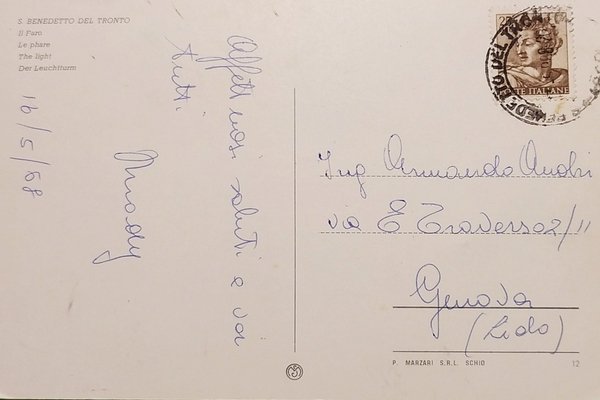 S. BENEDETTO DEL TRONTO
Il Faro
Le phare
The light
Der Leuchtturm
16/5/68
Affettuosi saluti a voi
tutti
POSTE ITALIANE
BENEDETTO DEL TRONTO
Ing Armando Andri
via E Traverso 2/11
Genova
(Lido)
P. MARZARI S.R.L. SCHIO
12